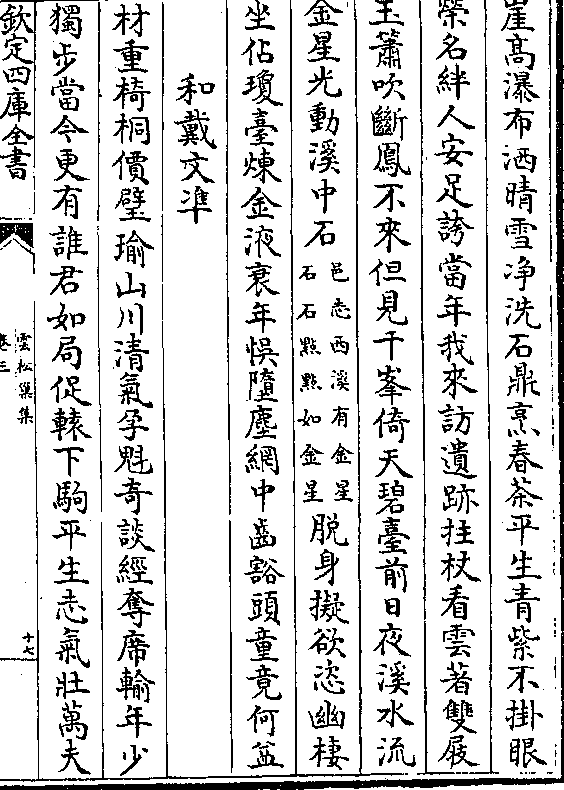 崖髙瀑布洒晴雪浄洗石鼎烹春茶平生青紫不掛眼
榮名絆人安足誇當年我來訪遺跡拄杖看雲著雙屐
玉簫吹斷鳳不來但見千峯倚天碧臺前日夜溪水流
金星光動溪中石邑志西溪有金星石石點點如金星脱身擬欲恣幽棲
坐佔瓊臺煉金液衰年悞墮塵網中齒豁頭童竟何益
和戴文凖
材重椅桐價璧瑜山川清氣孕魁竒談經奪席輸年少
獨步當今更有誰君如局促轅下駒平生志氣壯萬夫
欽定四庫全書
雲松巢集
卷三
十七